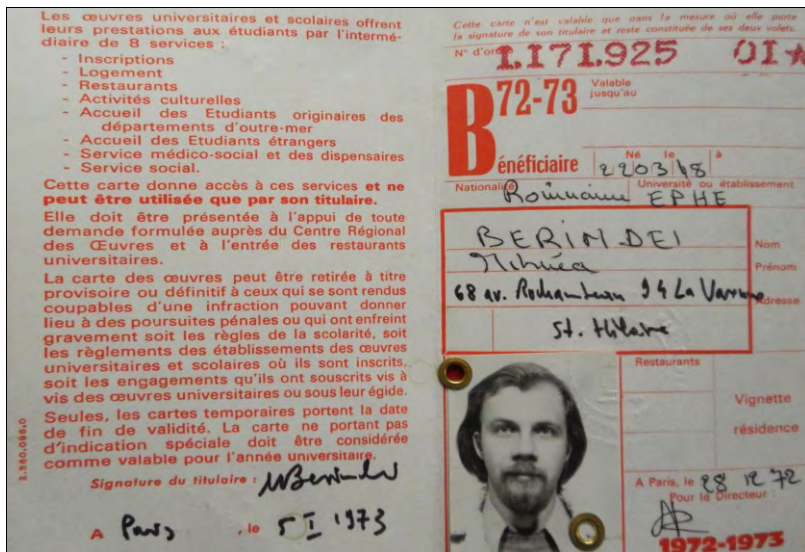 Les œuvres universitaires et scolaires offrent
leurs prestations aux étudiants par l'intermé-
diaire de 8 services :
- Inscriptions
- Logement
- Restaurants
- Activités culturelles
- Accueil des Etudiants originaires des
départements d'outre-mer
- Accueil des Etudiants étrangers
- Service médico-social et des dispensaires
- Service social.
Cette carte donne accès à ces services et ne
peut être utilisée que par son titulaire.
Elle doit être présentée à l'appui de toute
demande formulée auprès du Centre Régional
des Œuvres et à l'entrée des restaurants
universitaires.
La carte des œuvres peut être retirée à titre
provisoire ou définitif à ceux qui se sont rendus
coupables d'une infraction pouvant donner
lieu à des poursuites pénales ou qui ont enfreint
gravement soit les règles de la scolarité, soit
les règlements des établissements des œuvres
universitaires et scolaires où ils sont inscrits,
soit les engagements qu'ils ont souscrits vis à
vis des œuvres universitaires ou sous leur égide.
Seules, les cartes temporaires portent la date
de fin de validité. La carte ne portant pas
d'indication spéciale doit être considérée
comme valable pour l'année universitaire.
Signature du titulaire :
A Paris , le 5 I 1973
2.580.098.0
Cette carte n'est valable que dans la mesure où elle porte
la signature de son titulaire et reste constituée de ses deux volets.
N° d'ord 1.171.925 01★
B 72-73 Valable
jusqu'au
énéficiaire Né le à
220348
Nationalité Université ou établissement
Roumaine EPHE
BERINDEI Nom
Mihnéa Prénom
68 av. Rochambeau 94 La Varenne Adresse
St. Hilaire
Restaurants
Vignette
résidence
A Paris, le 28 12 72
Pour le Directeur :
1972-1973